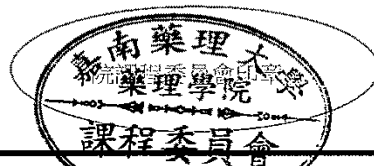 嘉南藥理大學
院課程委員會印章
藥理學院
課程委員會